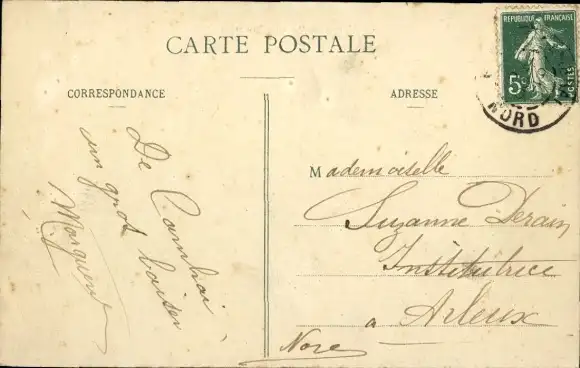 CARTE POSTALE
CORRESPONDANCE
ADRESSE
REPUBLIQUE FRANÇAISE
5c
POSTES
NORD
De Cambrai
un gros baiser
Mademoiselle
Suzanne Derain
Institutrice
a Arleux
Nord